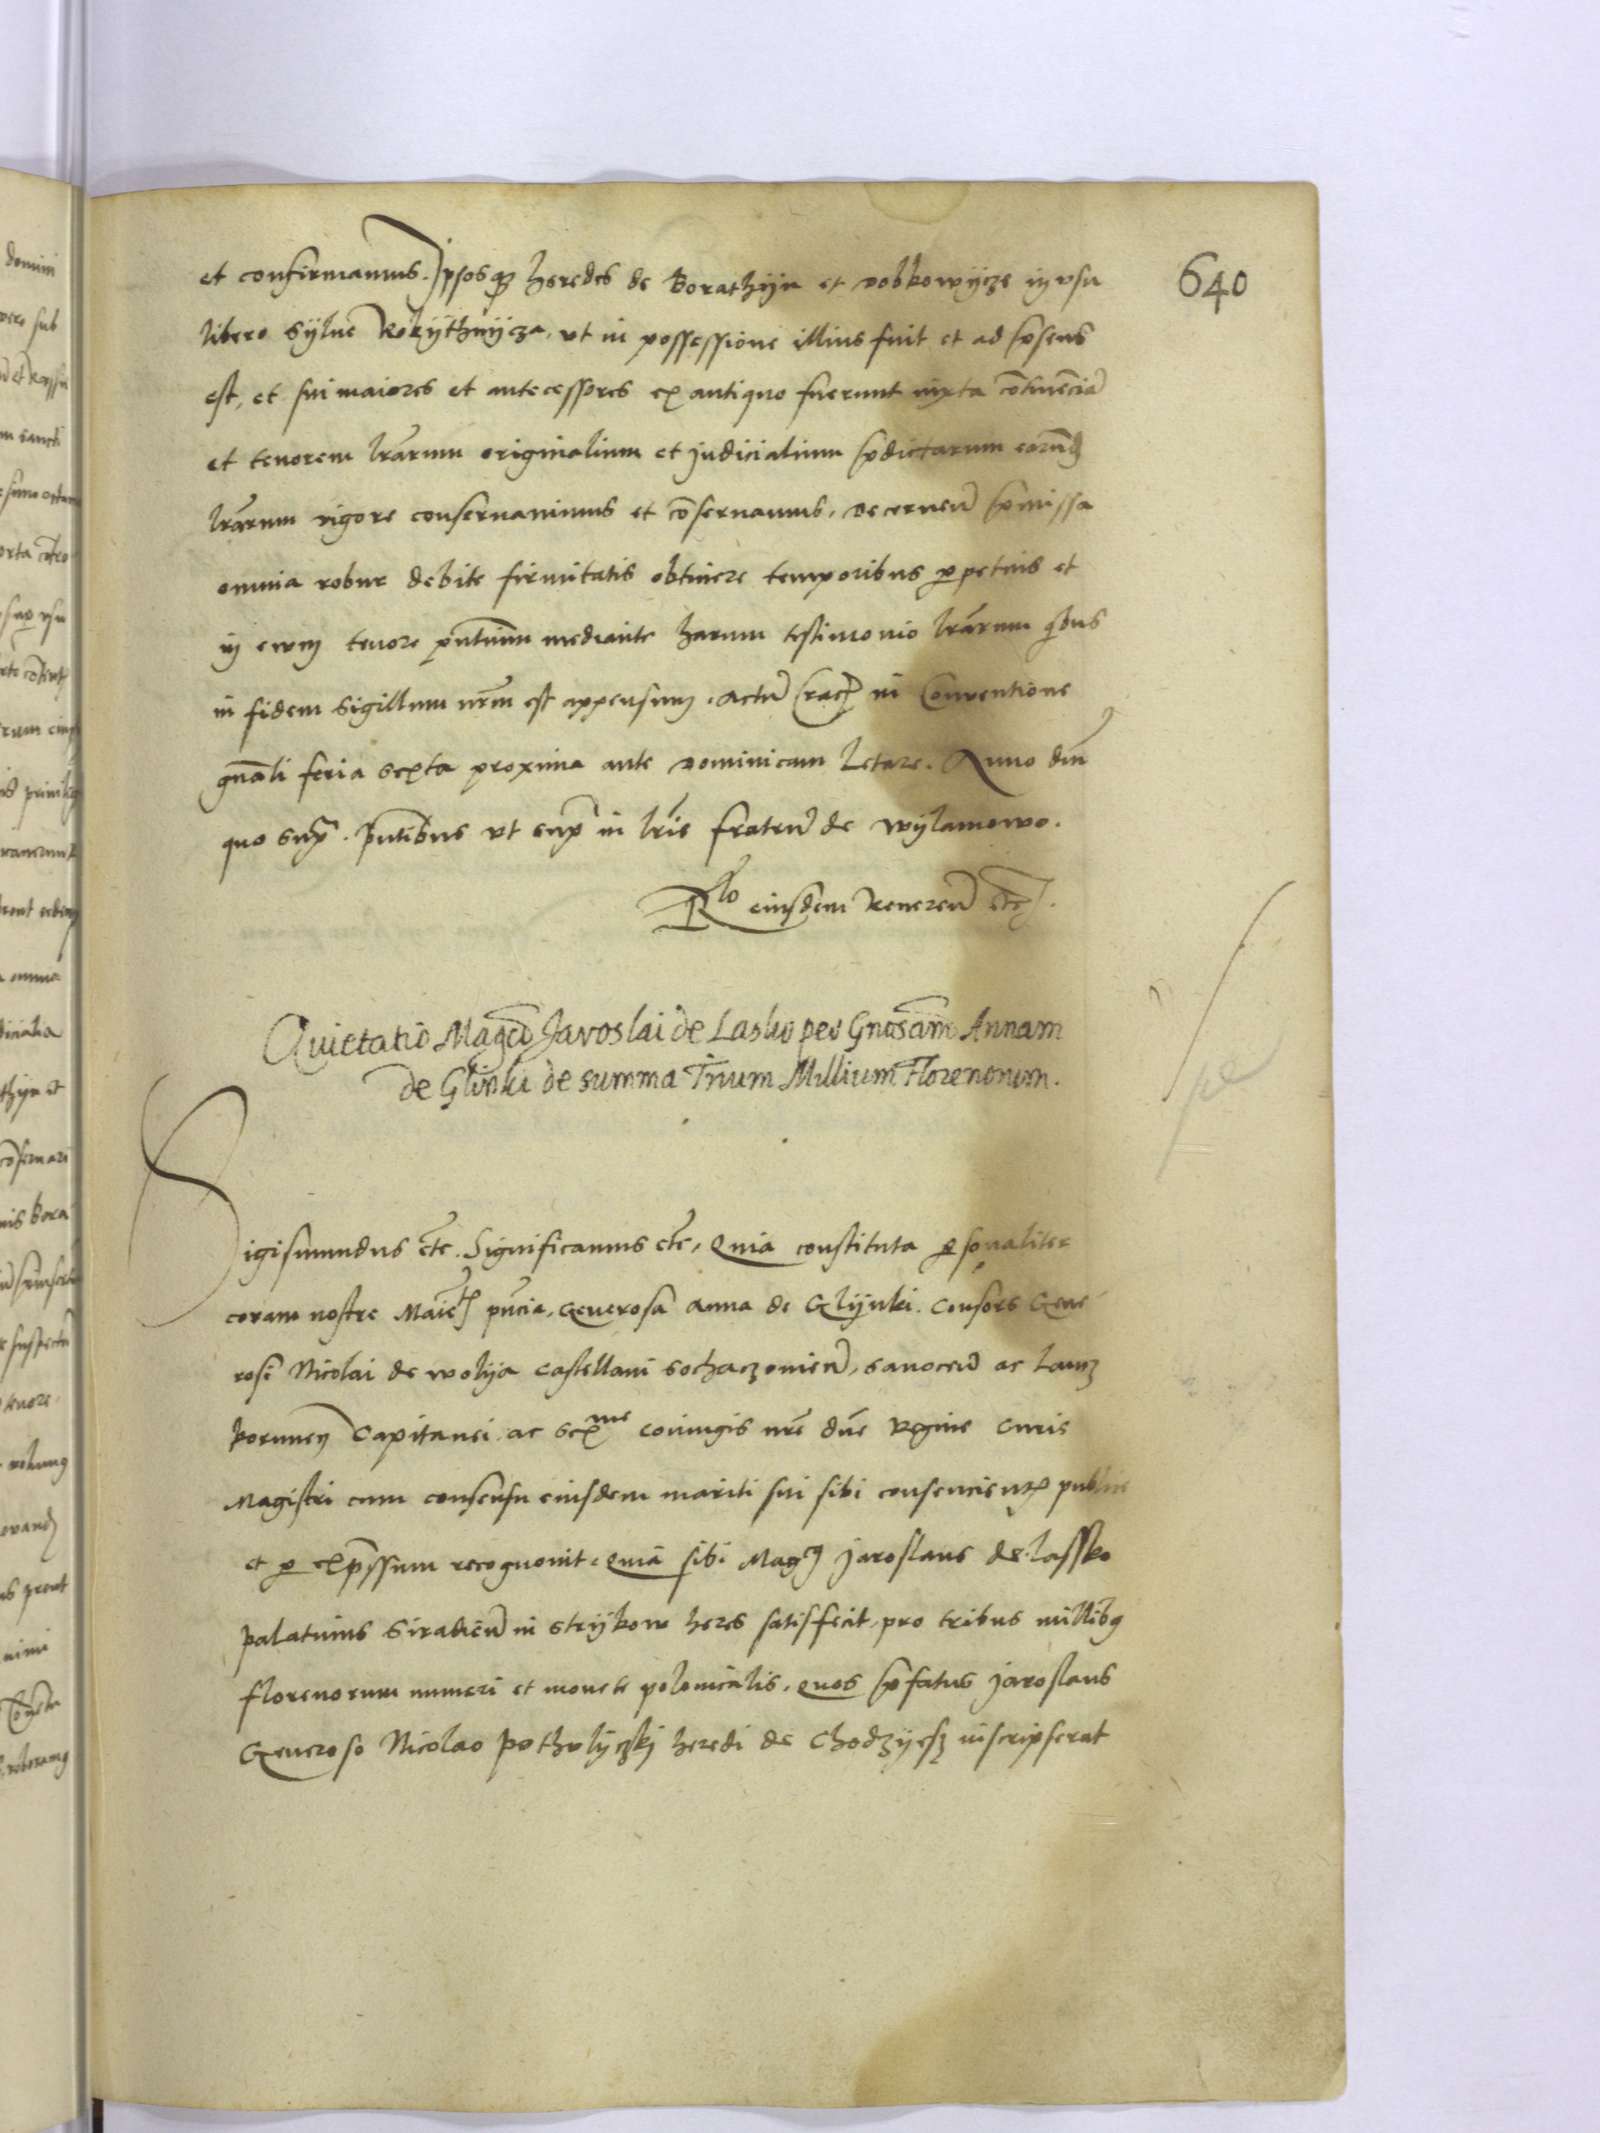 640
et confirmamus. Ipsosq3 heredes de Borathijn et Dobkowijcze in vsu
libero sylue Rokijthnijcza, vt in possessione illius fuit et ad p̄sens
est, et sui maiores et antecessores ex antiquo fuerunt iuxta cōtinēciā
et tenorem lrārum originalium et judicialium p̄dictarum earūd
lrārum vigore conseruauimus et cōseruamus. Decernen̄ p̄missa
omnia robur debite firmitatis obtinere temporibus perpetuis et
in ewm tenore pn̄tium mediante harum testimonio lrārum qbus
in fidem sigillum nrm̄ est appensum. Actū crac in Conuentione
gnāli feria sexta proxima ante Dominicam Letare. Anno dn̄i
quo sup̄. pn̄tibus vt sup̄ in lrīs fratrū de Wijlamowo.
Rlo eiusdem Reueren̄ etc̄.
Quietatio Magcī Jaroslai de Lasko per Gnosam̄ Annam
de Glinki de summa Trium Millium Florenorum.
Sigismundus etc̄. Significamus etc̄, Quia constituta personaliter
coram nostre Maietis pn̄cia, Generosa Anna de Glijnki. Consors Gene
rosi Nicolai de Wolija Castellani Sochaczouien̄, Sanocen̄ ac Lancz
korunen̄ Capitanei. ac Serme coniugis nrē dn̄e Regine Curie
Magistri cum consensu eiusdem mariti sui sibi consencien̄ publice
et per exp̄ssum recognouit. Quia sibi Magcus Jaroslaus de Lassko
palatinus Siradien̄ in Strijkow heres satisfecit, pro tribus millibus
florenorum numeri et monete polonicalis, quos p̄fatus Jaroslaus
Generoso Nicolao Potholijczkj heredi de Chodzijesz inscripserat